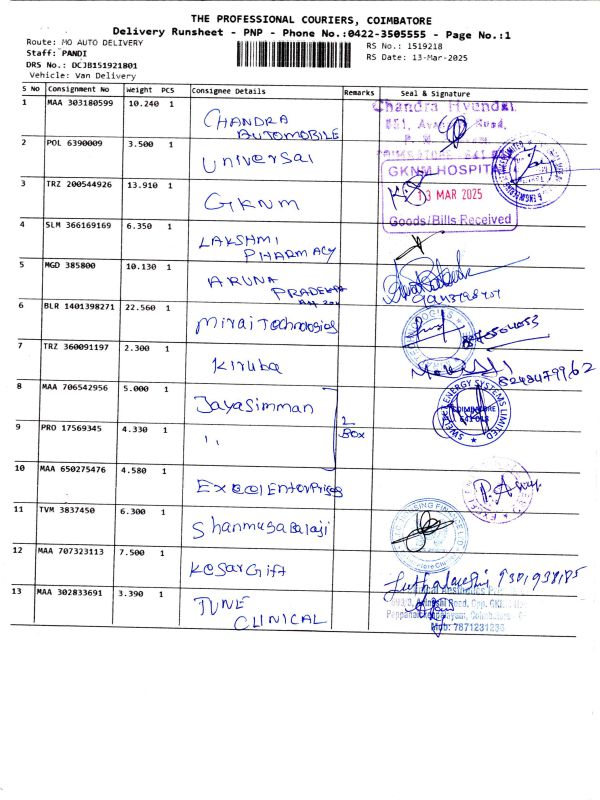 THE PROFESSIONAL COURIERS, COIMBATORE
Delivery Runsheet - PNP - Phone No.:0422-3505555 - Page No.:1
Route: MO AUTO DELIVERY
Staff: PANDI
DRS No.: DCJB151921801
Vehicle: Van Delivery
RS No.: 1519218
RS Date: 13-Mar-2025
S No Consignment No Weight PCS Consignee Details Remarks Seal & Signature
1 MAA 303180599 10.240 1 CHANDRA AUTOMOBILE
2 POL 6390009 3.500 1 Universal
3 TRZ 200544926 13.910 1 GKNM
GKNM HOSPITAL
13 MAR 2025
Goods/Bills Received
4 SLM 366169169 6.350 1 LAKSHMI PHARMACY
5 MGD 385800 10.130 1 ARUNA
6 BLR 1401398271 22.560 1 Mirai Technologies
7 TRZ 360091197 2.300 1 Kiruba
8 MAA 706542956 5.000 1 Jayasimman
SWELECT ENERGY SYSTEMS LIMITED
COIMBATORE
641 018
9 PRO 17569345 4.330 1 "
2 Box
10 MAA 650275476 4.580 1 Excel Enterprises
11 TVM 3837450 6.300 1 Shanmuga Balaji
12 MAA 707323113 7.500 1 Kesar Gift
13 MAA 302833691 3.390 1 TUNE CLINICAL
Mob: 7871231236